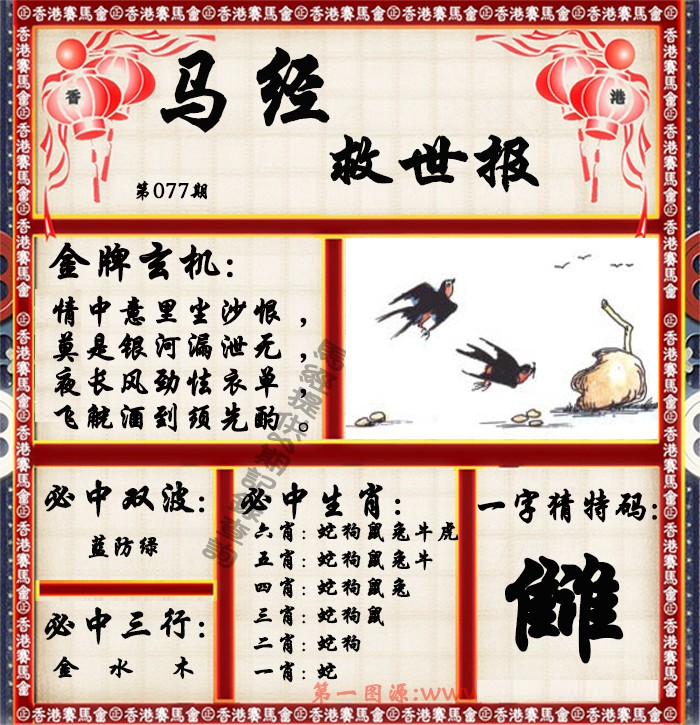 香港賽馬會
香
港
马经
救世报
第077期
金牌玄机:
情中意里尘沙恨，
莫是银河漏泄无，
夜长风劲怯衣单，
飞觥酒到须先酌。
必中双波:
蓝防绿
必中三行:
金 水 木
必中生肖:
六肖: 蛇狗鼠兔牛虎
五肖: 蛇狗鼠兔牛
四肖: 蛇狗鼠兔
三肖: 蛇狗鼠
二肖: 蛇狗
一肖: 蛇
一字猜特码:
雠
第一图源:www